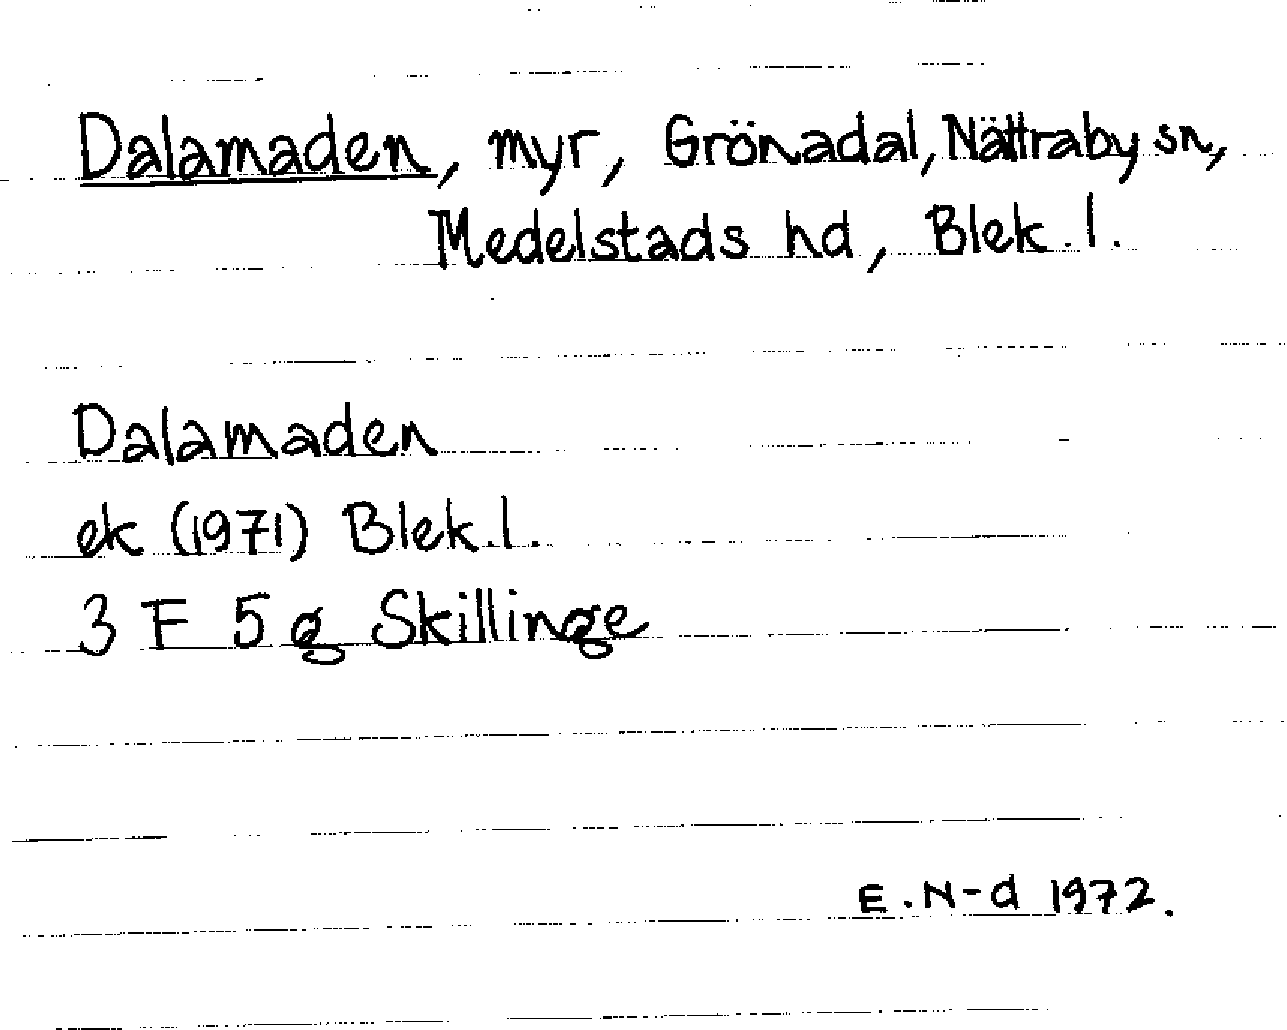 Dalamaden, myr, Grönadal, Nättraby sn,
Medelstads hd, Blek. l.
Dalamaden
ek (1971) Blek. l.
3 F 5 g Skillinge
E. N-d 1972.